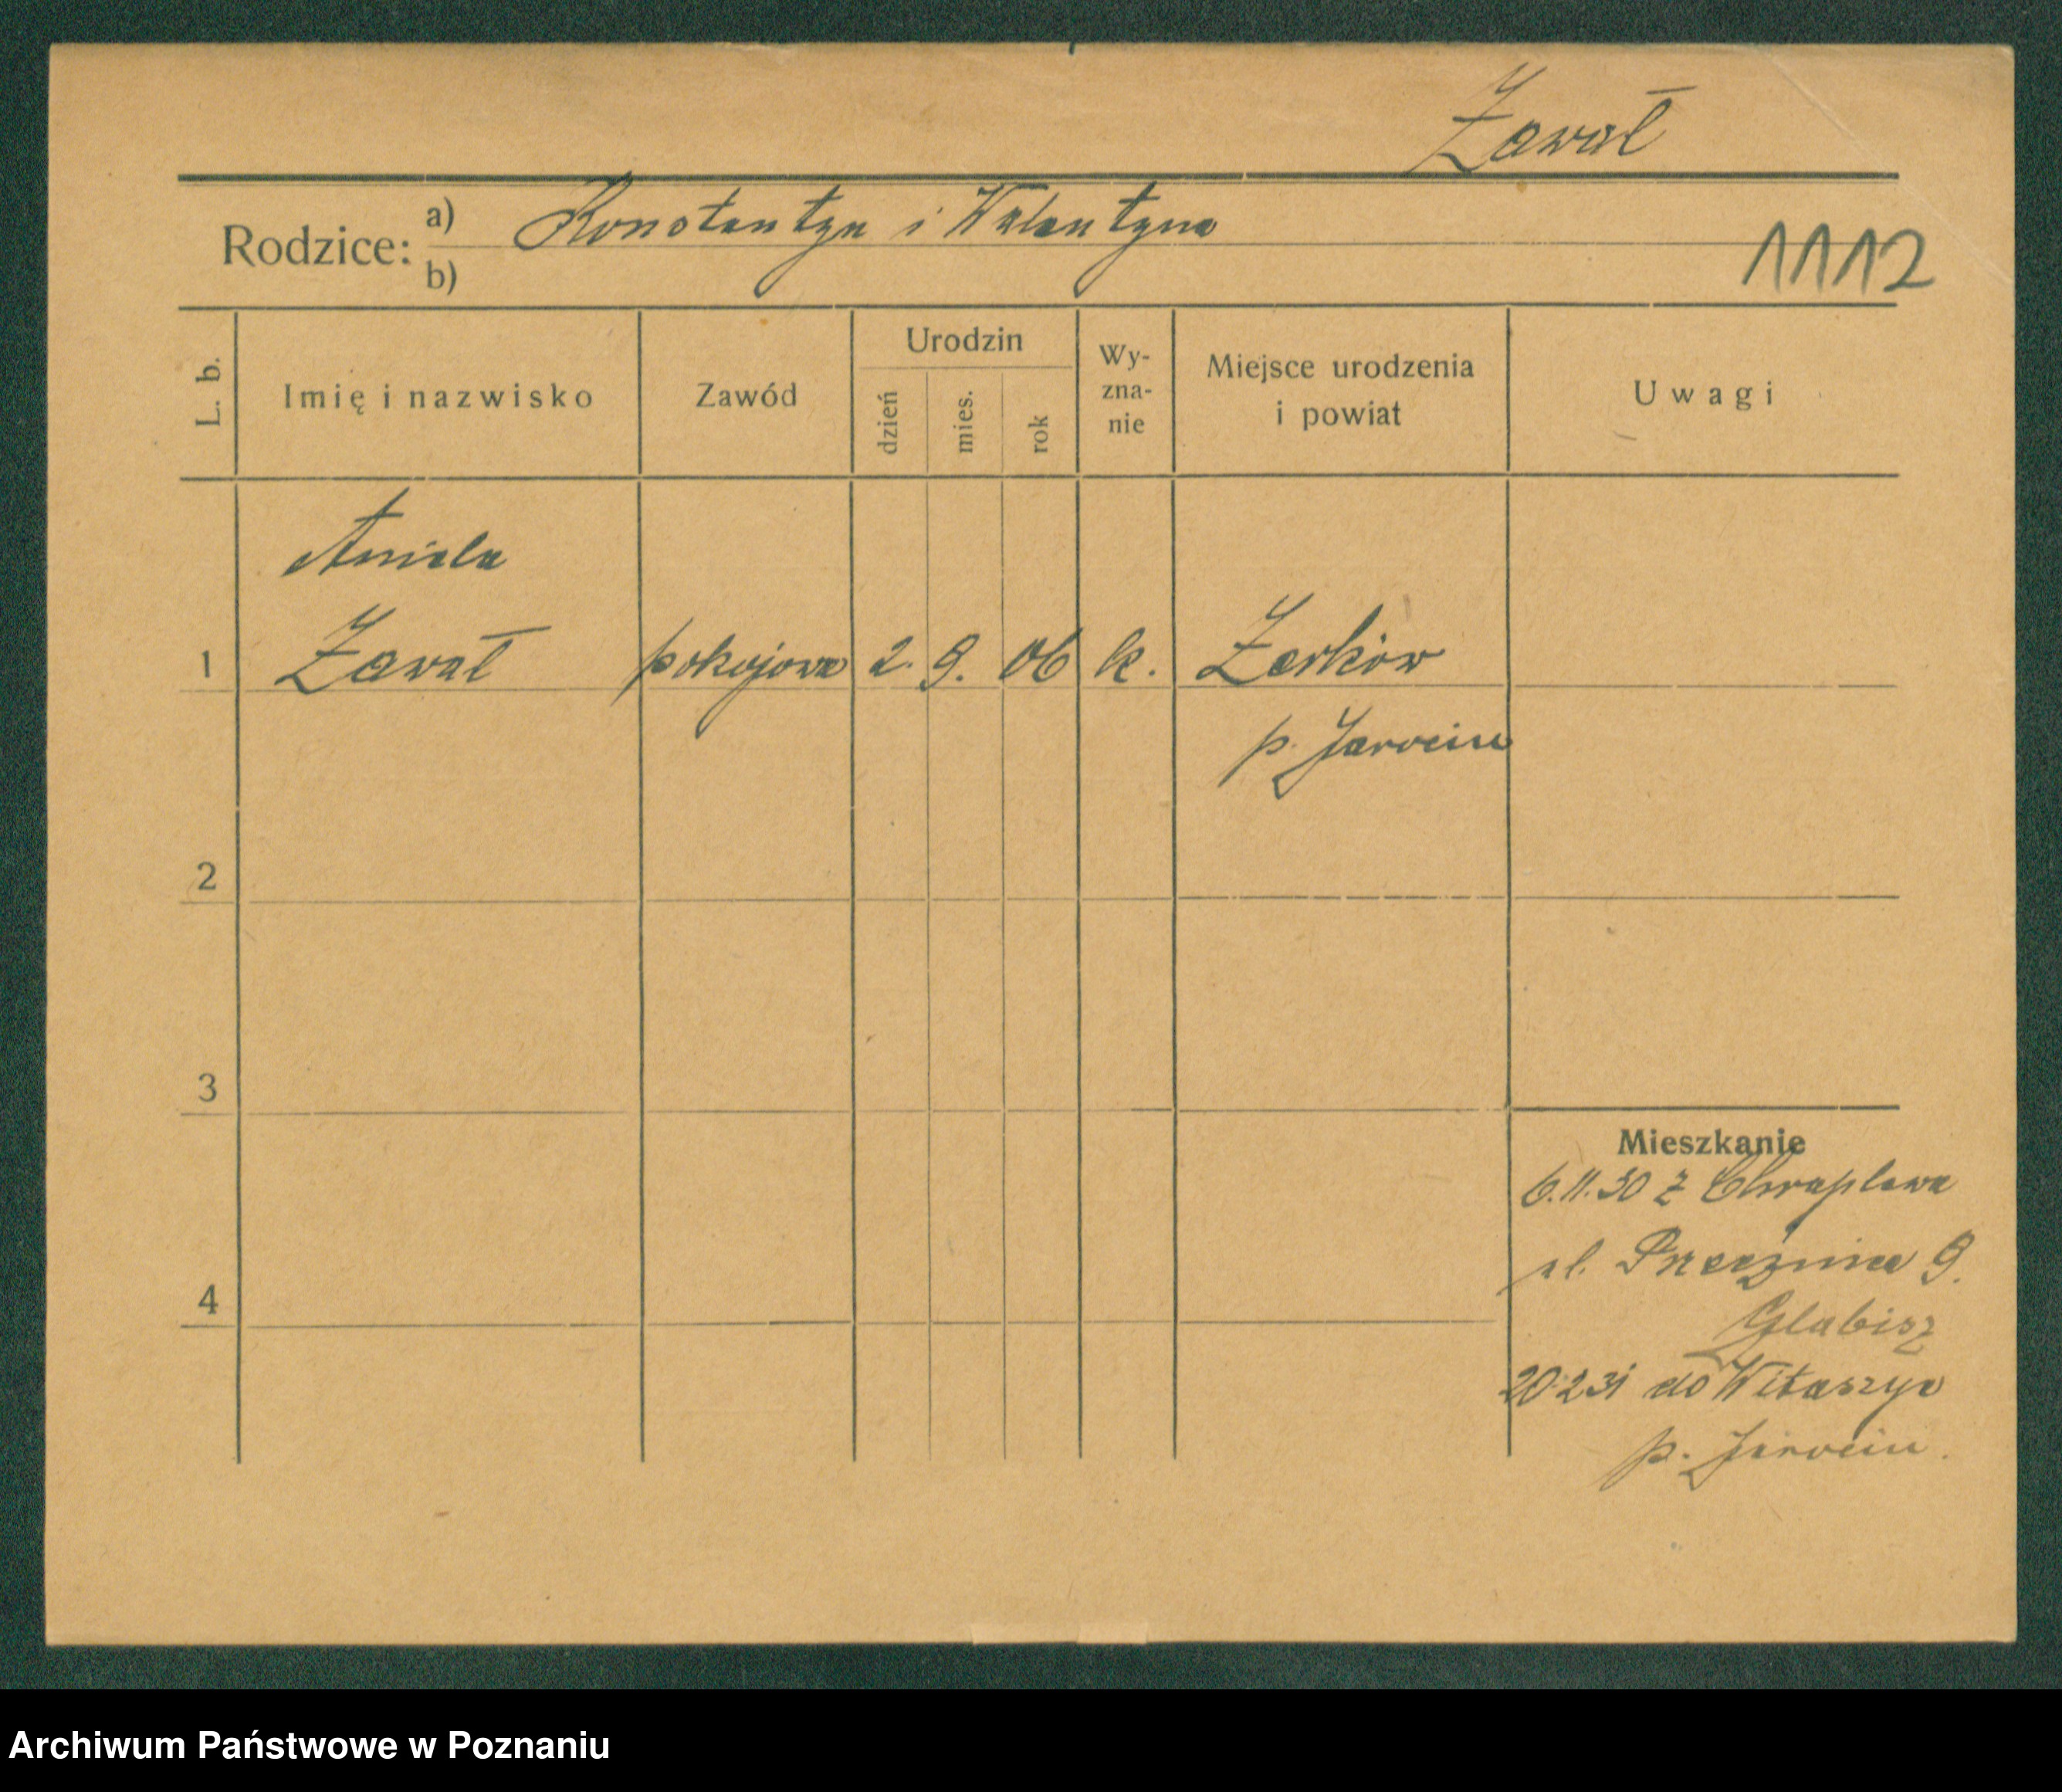 Zawał
Rodzice: a) Konstantyn i Walentyna
b)
1112
L. b.
Imię i nazwisko
Zawód
Urodzin
dzień
mies.
rok
Wy-
zna-
nie
Miejsce urodzenia
i powiat
Uwagi
Aniela
1 Zawał pokojowa 2. 9. 06 k. Zerków
p. Jarocin
2
3
4
Mieszkanie
6.11.30 z Chraplewa
ul. Przecznica 9.
Glabisz
20.2.31 do Witaszyc
p. Jarocin.
Archiwum Państwowe w Poznaniu